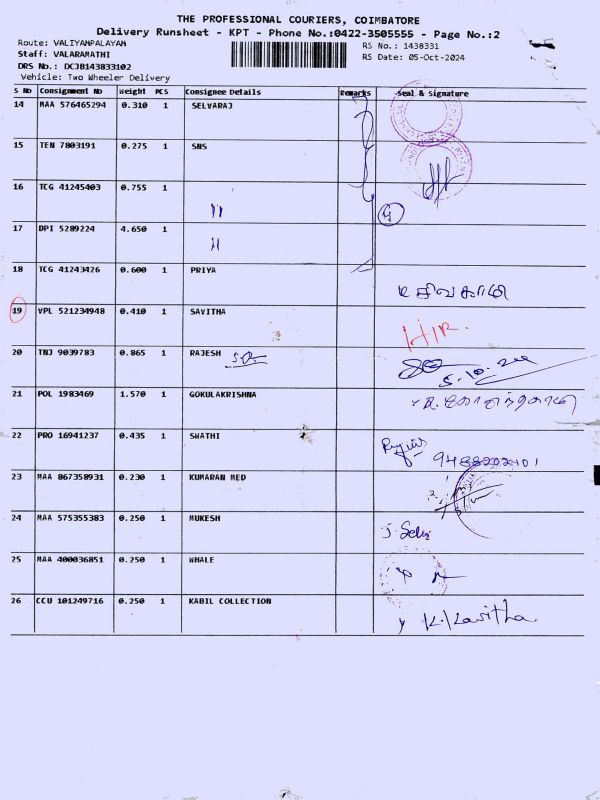 THE PROFESSIONAL COURIERS, COIMBATORE
Delivery Runsheet - KPT - Phone No.:0422-3505555 - Page No.:2
Route: VALIYAMPALAYAM
RS No.: 1438331
Staff: VALARAMATHI
RS Date: 05-Oct-2024
DRS No.: DCJB143833102
Vehicle: Two Wheeler Delivery
S No Consignment No Weight PCS Consignee Details Remarks Seal & Signature
14 MAA 576465294 0.310 1 SELVARAJ
15 TEN 7803191 0.275 1 SNS
16 TCG 41245403 0.755 1 "
17 DPI 5289224 4.650 1 "
18 TCG 41243426 0.600 1 PRIYA
19 VPL 521234948 0.410 1 SAVITHA H/R.
20 TNJ 9039783 0.865 1 RAJESH
21 POL 1983469 1.570 1 GOKULAKRISHNA
22 PRO 16941237 0.435 1 SWATHI 9488202101
23 MAA 867358931 0.230 1 KUMARAN MED
24 MAA 575355383 0.250 1 MUKESH
25 MAA 400036851 0.250 1 WHALE
26 CCU 101249716 0.250 1 KABIL COLLECTION K.Kavitha